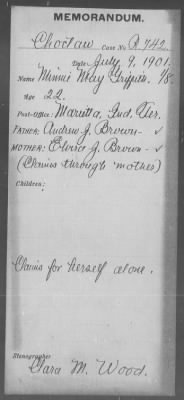 MEMORANDUM.
Choctaw Case No. R 742.
Date: July 9, 1901.
Name Minnie May Griffin. 1/8.
Age 22.
Post-Office: Marietta, Ind. Ter.
FATHER: Andrew J. Brown- ✓
MOTHER: J. Brown- ✓
(Claims through mother)
Children:
Claims for herself alone.
Stenographer
Clara M. Wood.